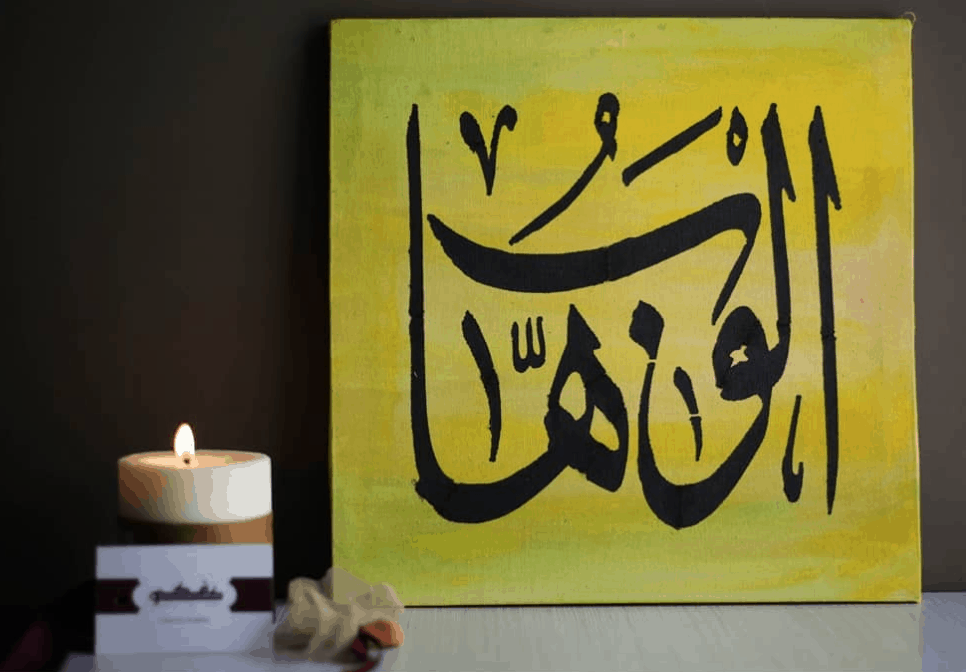 الوَهَّابُ